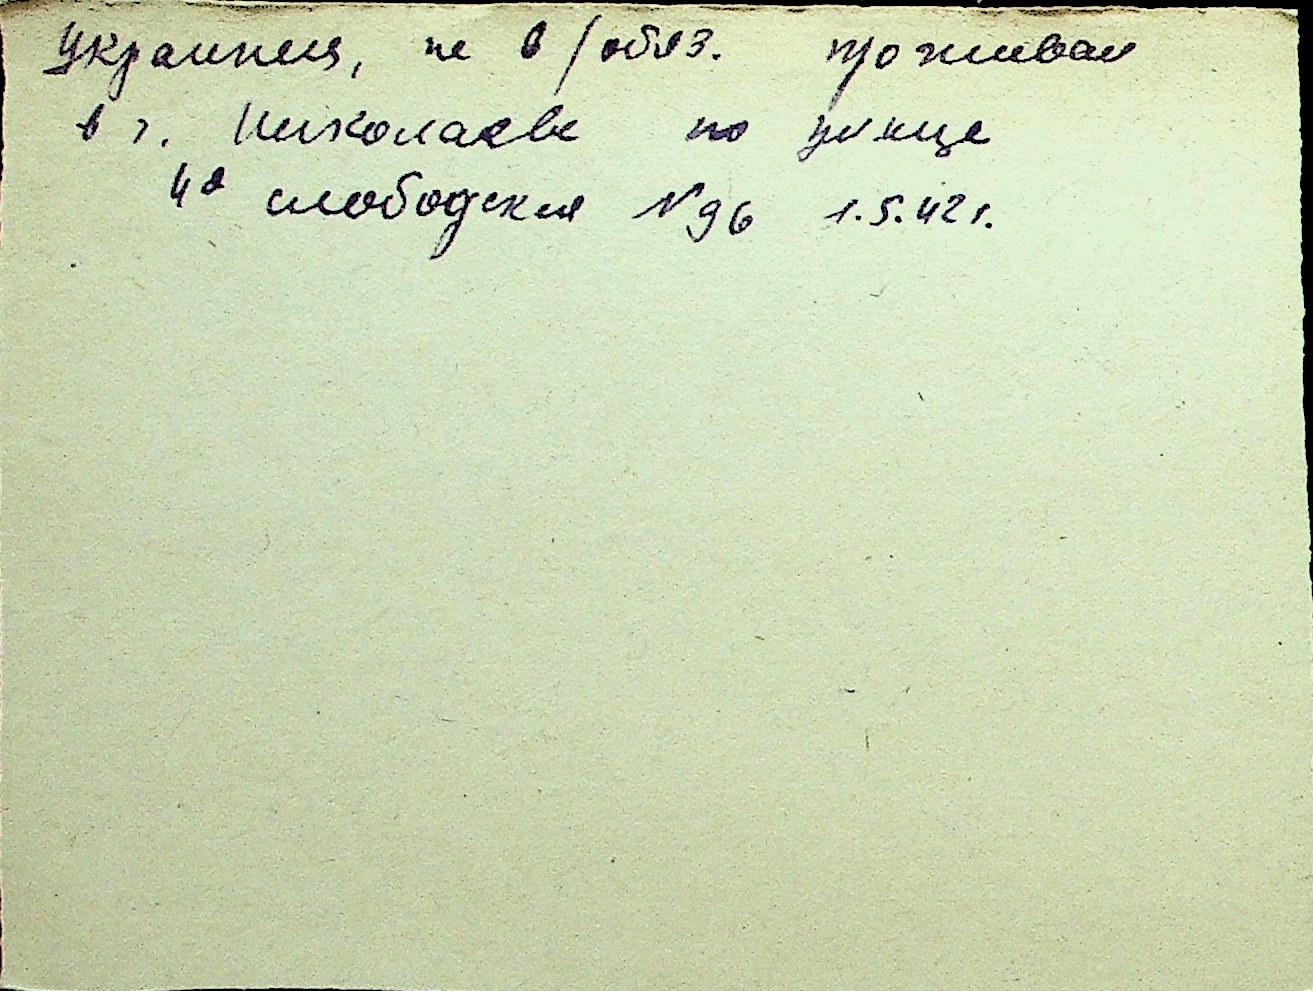 Украинец, не в/обяз. проживал
в г. Николаеве по улице
4я слободская №96 1.5.42 г.